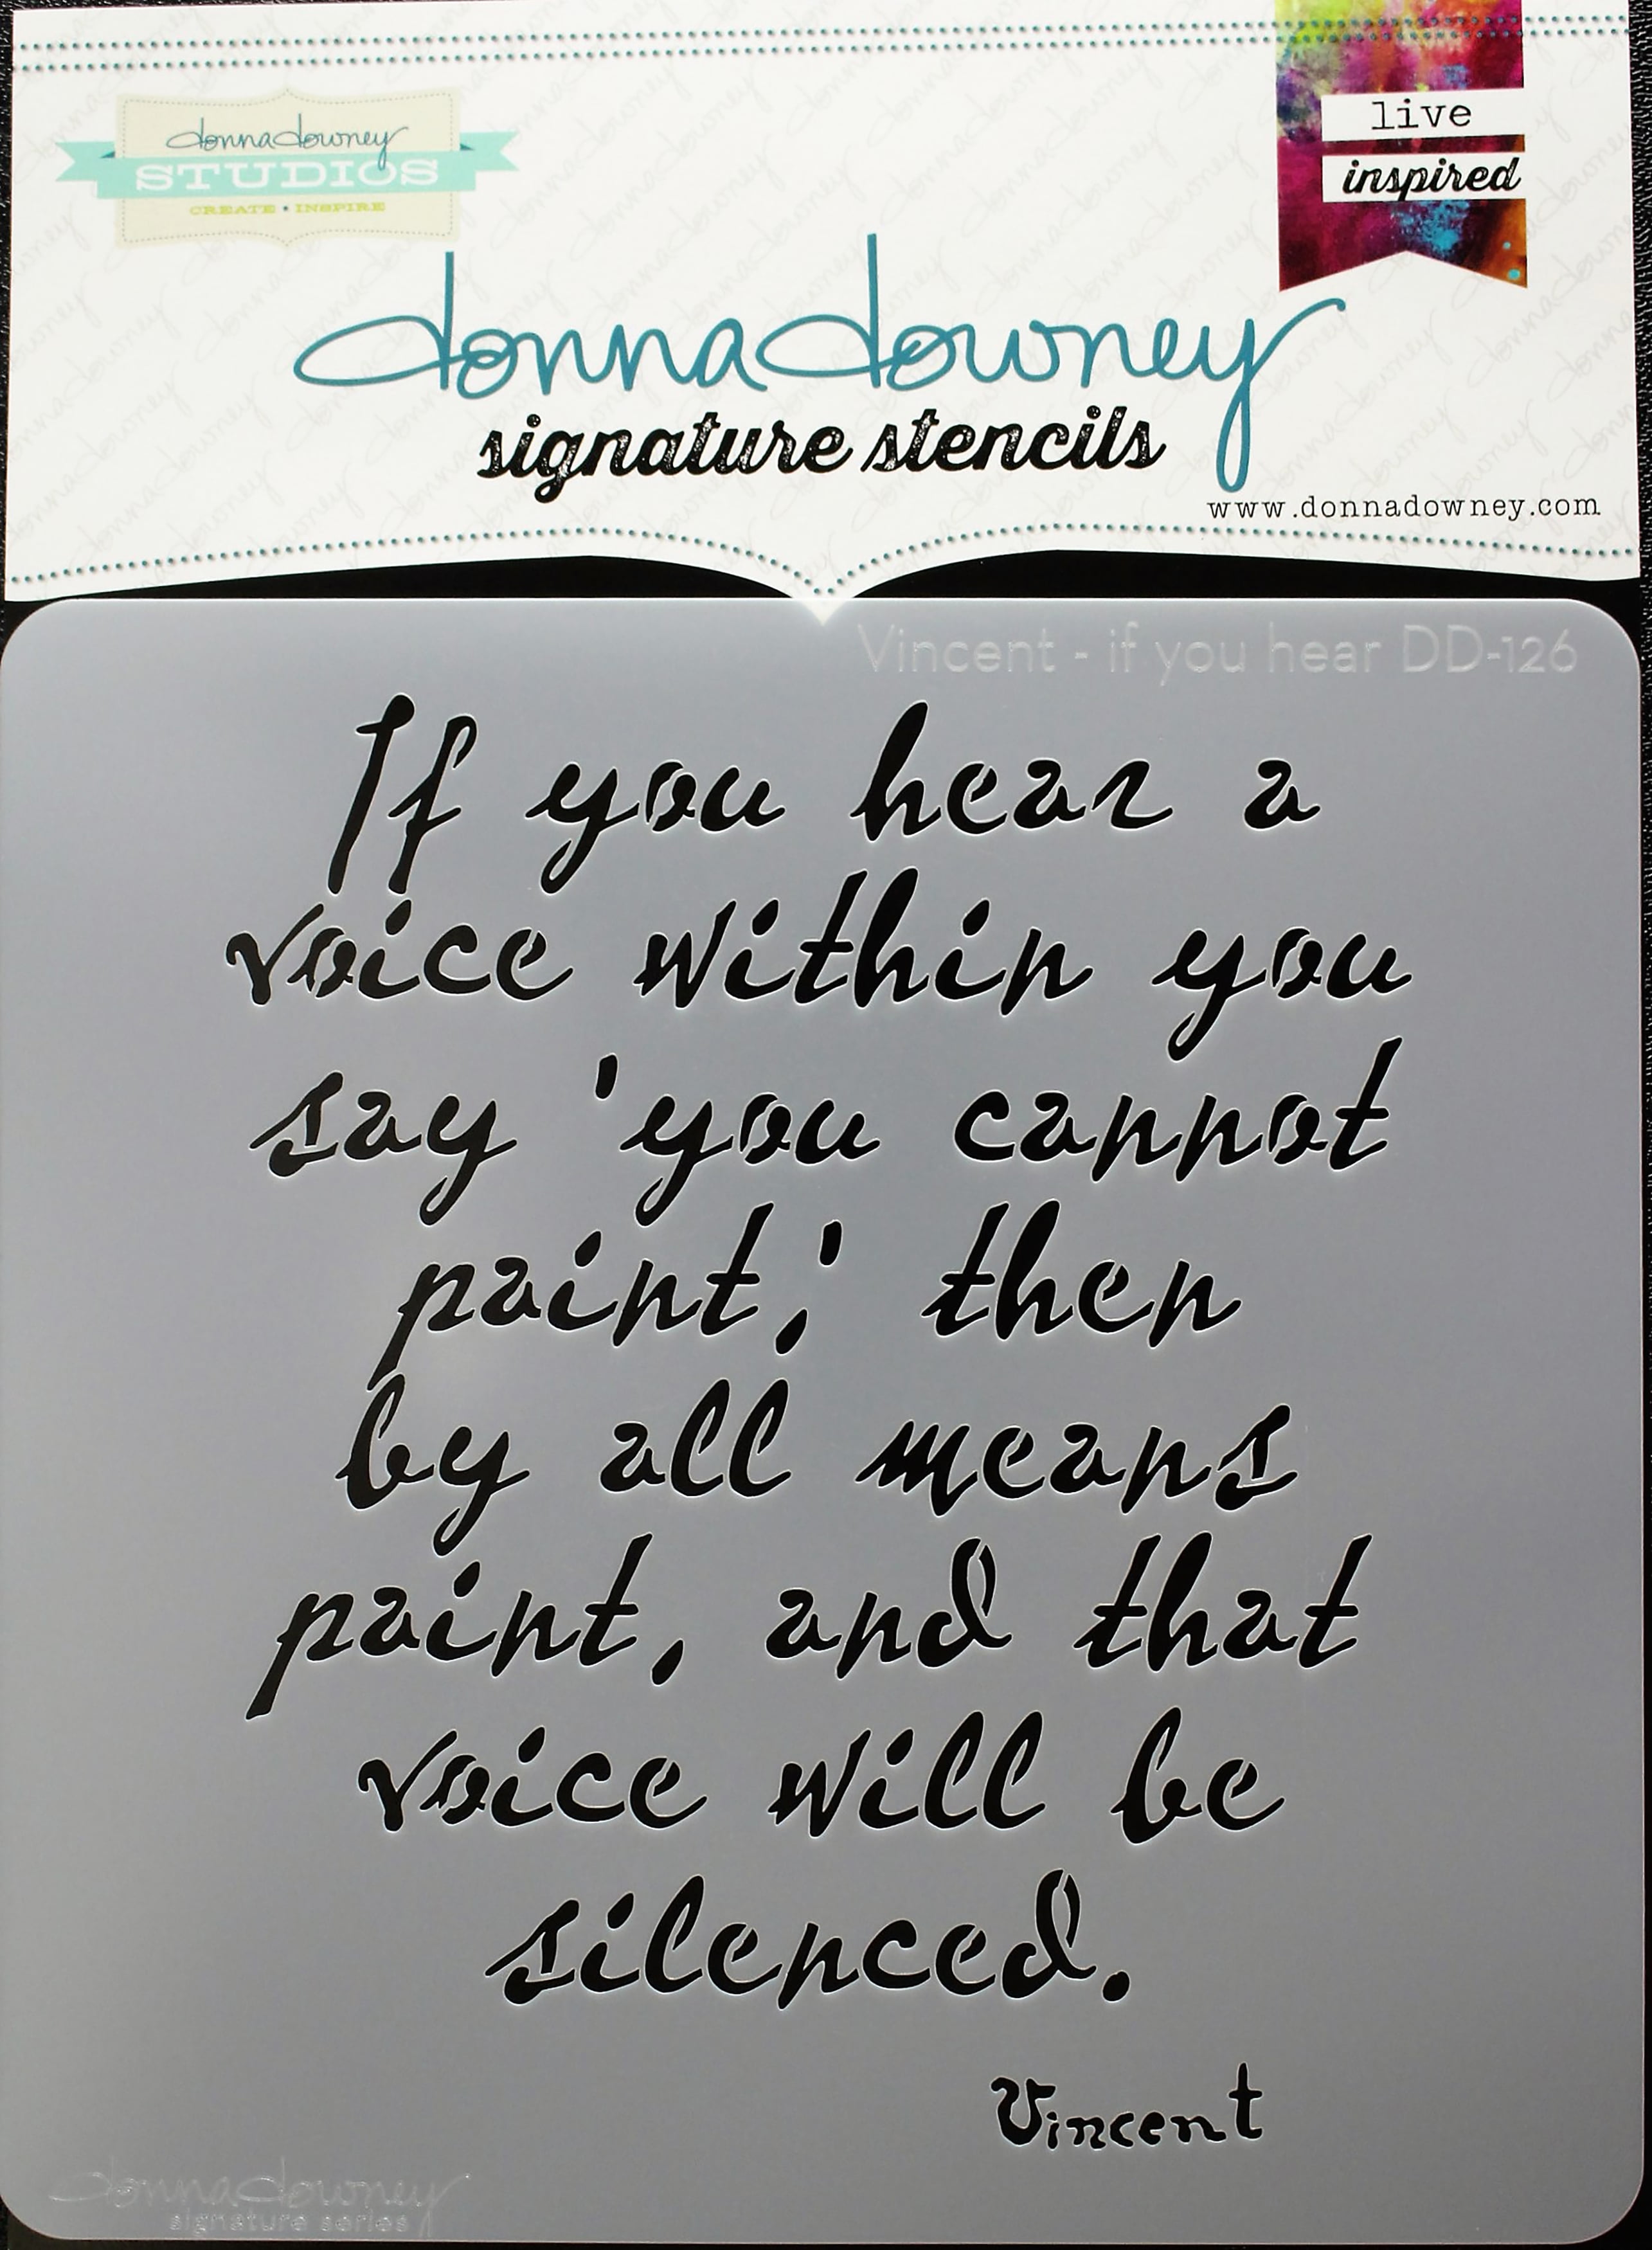 donnadowney
STUDIOS
CREATE • INSPIRE
live
inspired
donnadowney
signature stencils
www.donnadowney.com
Vincent - if you hear DD-126
If you hear a
voice within you
say 'you cannot
paint,' then
by all means
paint, and that
voice will be
silenced.
Vincent
donnadowney
signature series